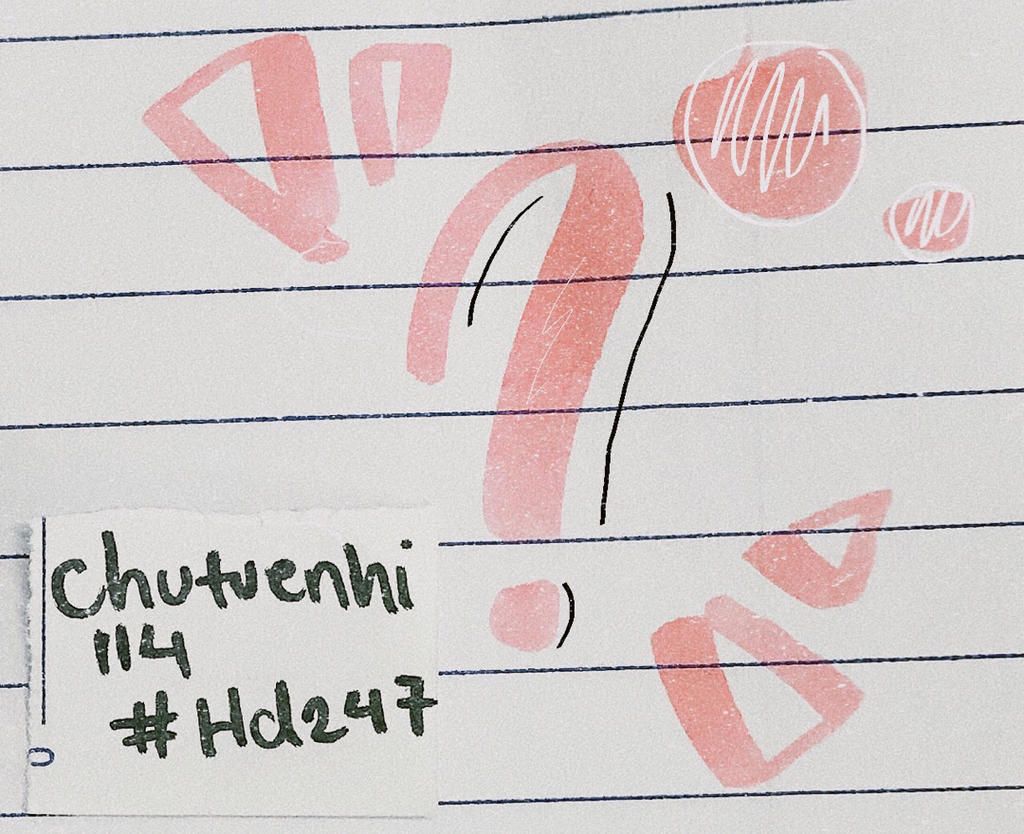 ?
Chutuenhi
114
#Hd247